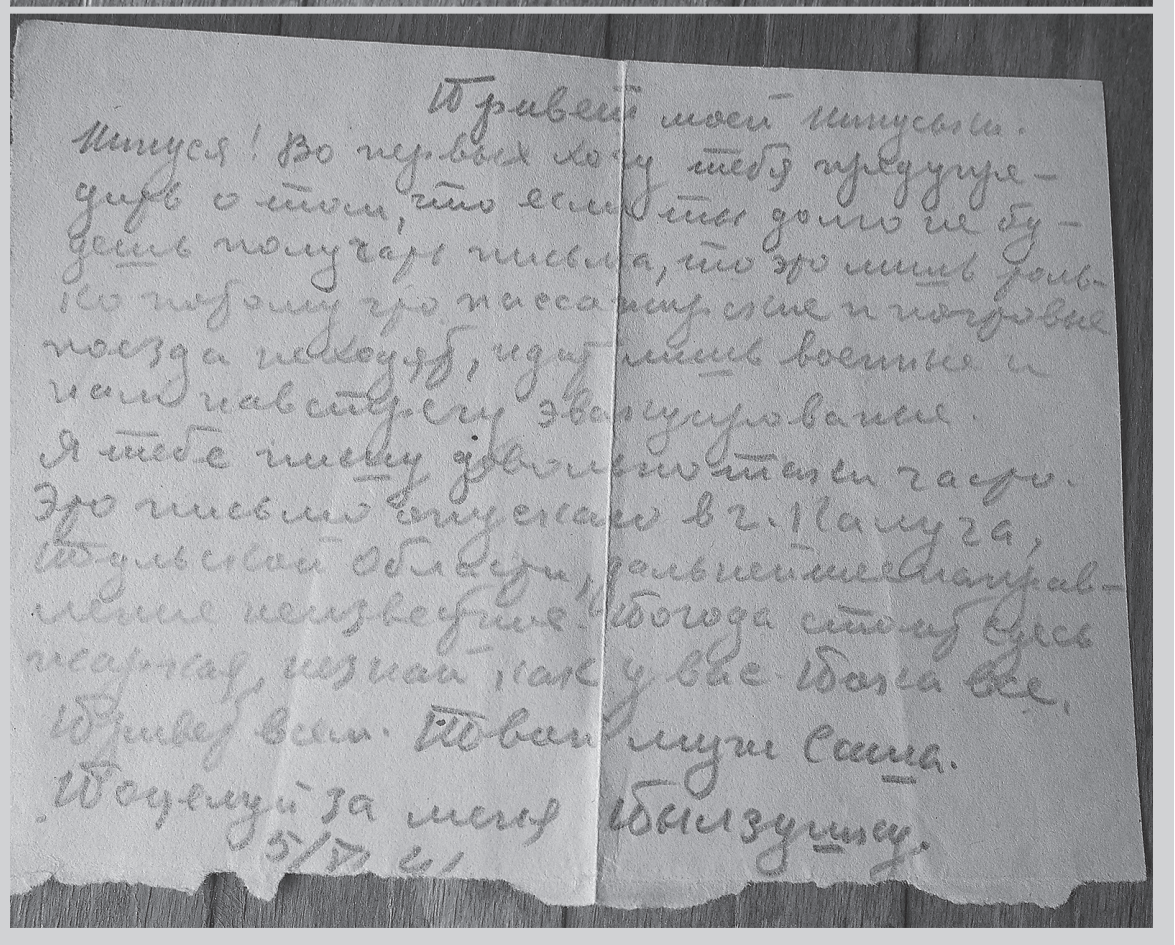 Привет моей Нинуськи.
Нинуся! Во первых хочу тебя предупре-
дить о том, что если ты долго не бу-
дешь получать письма, то это лишь толь-
ко потому что пассажирские и почтовые
поезда не ходят, идут лишь военные и
нам навстречу эвакуированые.
Я тебе пишу довольно таки часто.
Это письмо опускаю в г. Калуга,
Тульской области, дальнейшее направ-
ление неизвестное. Погода стоит здесь
жаркая, незнай как у вас. Пока все.
Привет всем. Твой муж Саша.
Поцелуй за меня
5/VII 41